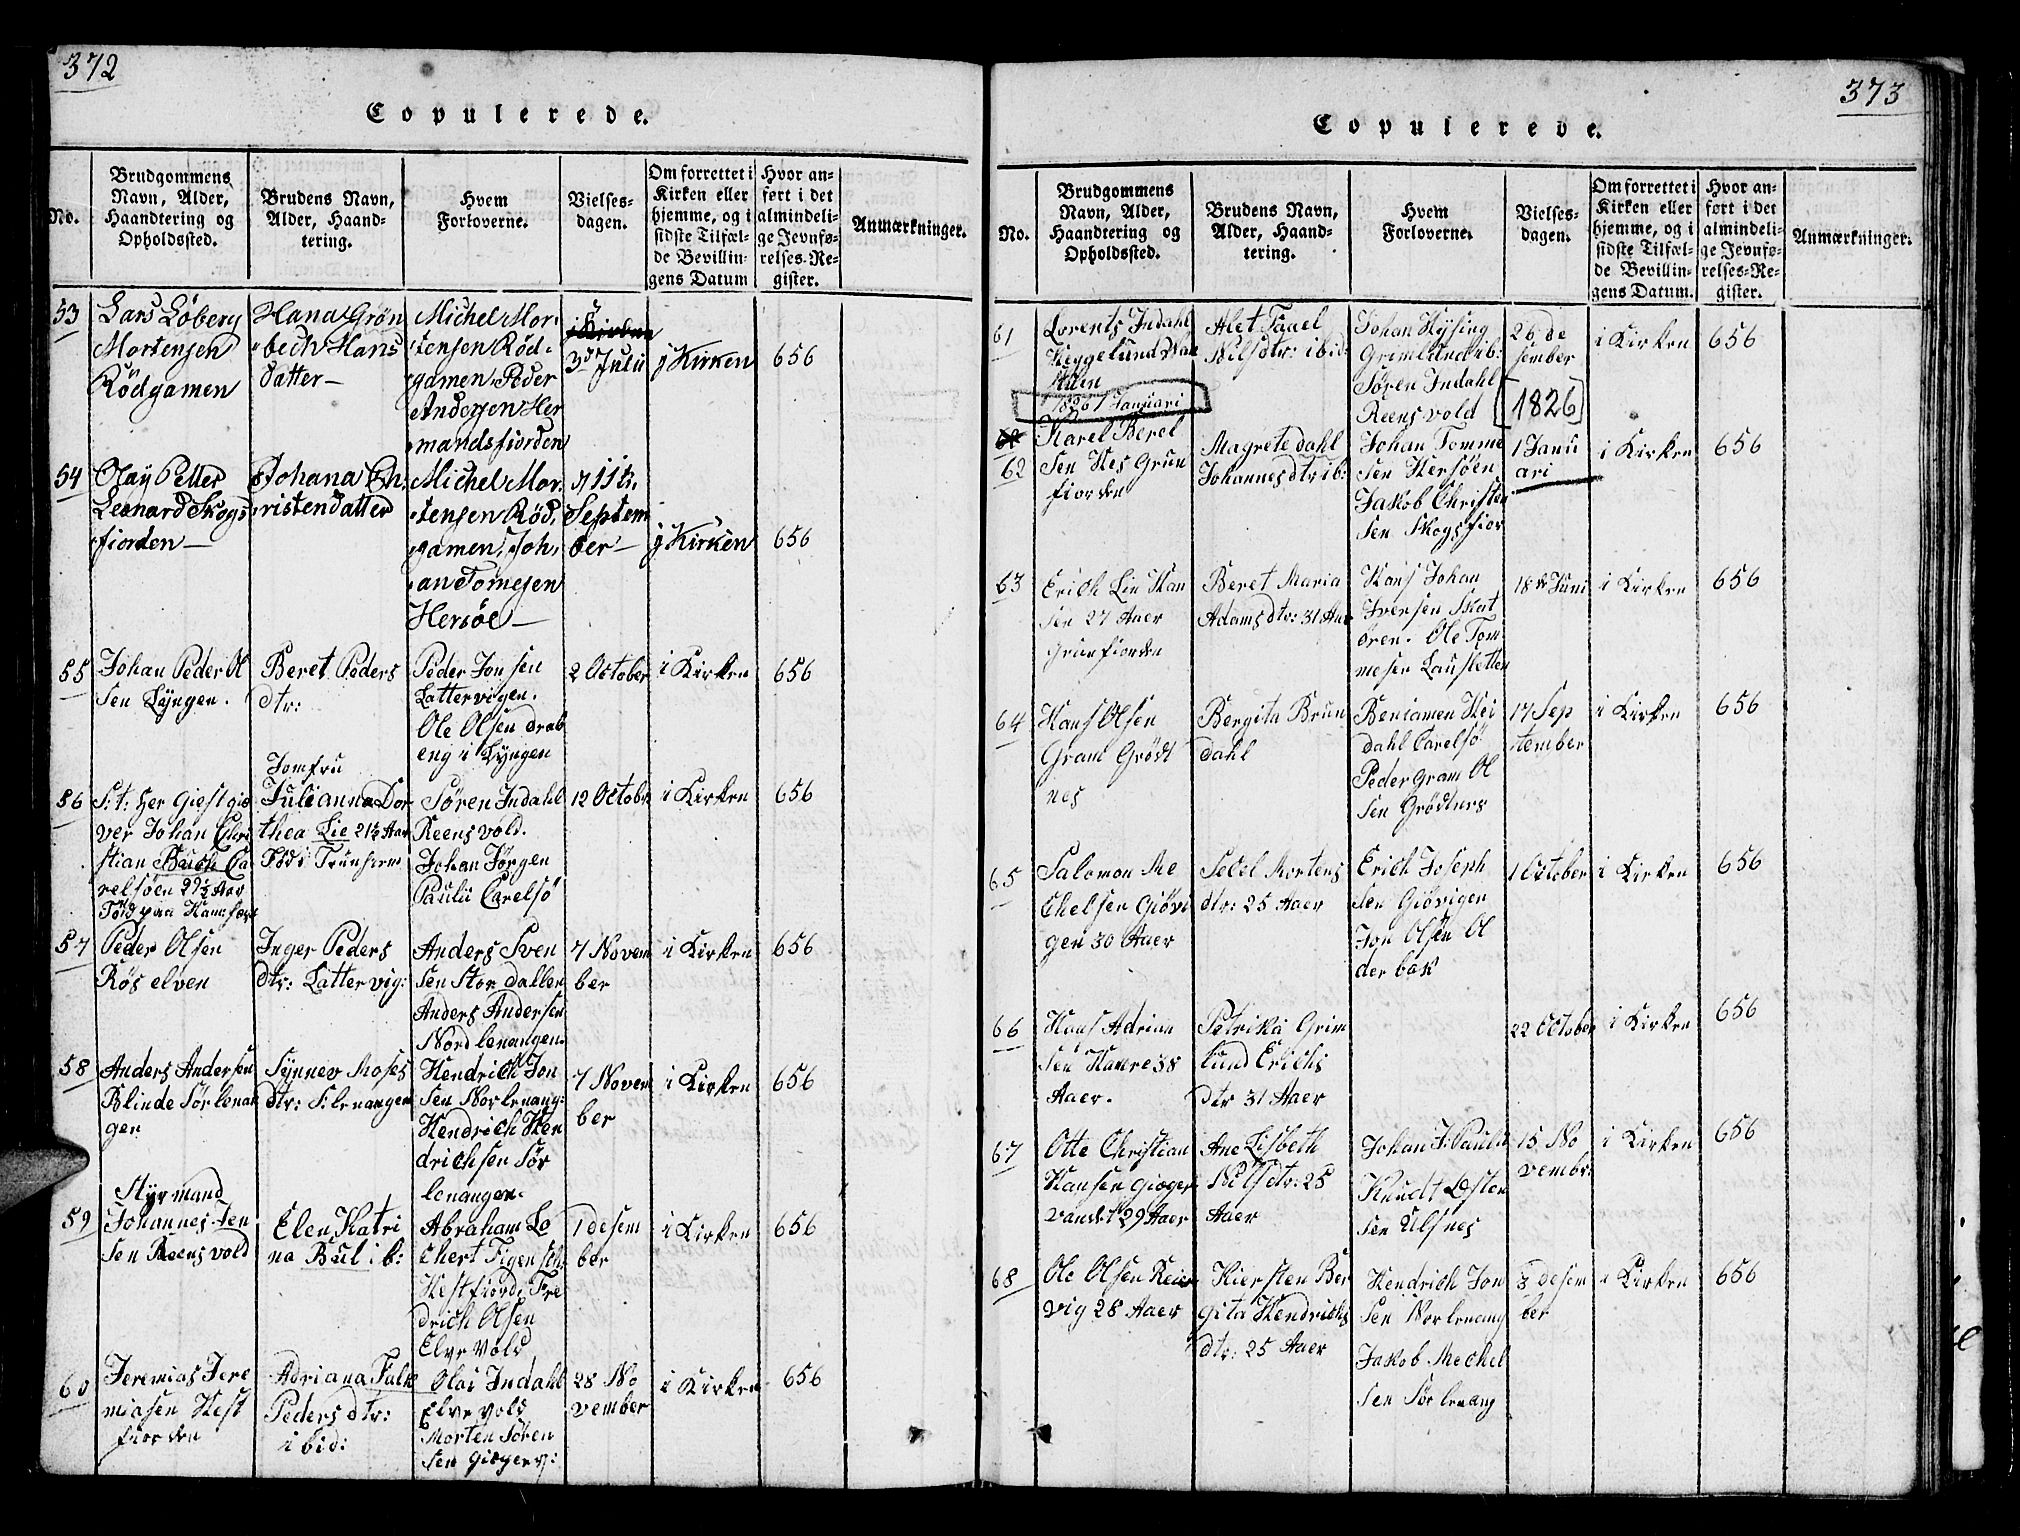 372
Copulerede.
No.
Brudgommens
Navn, Alder,
Haandtering og
Opholdssted.
Brudens Navn,
Alder, Haand-
tering.
Hvem
Forloverne.
Vielses-
dagen.
Om forrettet i
Kirken eller
hjemme, og i
sidste Tilfæl-
de Bevillin-
gens Datum
Hvor an-
ført i det
almindeli-
ge Jevnfø-
relses-Re-
gister.
Anmærkninger.
53
Lars Löberg
Mortensen
Rödgamen
Hana Grön
bech Hans
datter—
Michel Mor-
tensen Röd-
gamen, Peder
Andersen Her
mandsfiorden
3d Julii
j Kirken
656
54
Olay Petter
Leonard Skogs
fiorden—
Johana Ch-
ristendatter
Michel Mor-
tensen Röd-
gamen, Joh-
an Tomesen
Hersöe—
Septem
ber—
j Kirken
656
55
Johan Peder Ol
sen Lyngen.
Beret Peders
dtr:
Peder Jonsen
Lattervigen.
Ole Olsen drab
eng i Lyngen
2 October
i Kirken
656
56
S: t: Her Giestgi
ver Johan Chri
stian Bach Ca
relsöen 29½ Aar
Född paa Hamsfæst
Jomfru
Julianna Dor
thea Lie 21½ Aar
Född i Trunhiem
Sören Indahl
Reensvold.
Johan Jörgen
Paulii Carelsö
12 October
i Kirken
656
57
Peder Olsen
Rös elven
Inger Peders
dtr: Lattervig:
Anders Sven
sen Stordallen
Anders Andersen
Nordlenangen
7 Novem
ber
i Kirken
656
58
Anders Andersen
Blinde Sör lenan
gen
Synnev Moses
dtr: S: lenangen
Hendrich Jon
sen Norlenang:
Hendrich Hen
drichsen Sör
lenangen.
7 Novem
ber
i Kirken
656
59
Styrmand
Johannes Jen
sen Reensvold
Elen Katri
na Bul i b:
Abraham Lo
Hestfiord, Fre
drich Olsen
Elvevold
1 desem
ber
i Kirken
656
60
Jeremias Jere
miasen Hest
fiorden
Adriana Falk
Peders dtr:
ibid:
Olai Indahl
Elvevold
Morten Sören
sen Giögerv:
28 No
vember
i Kirken
656
373
Copulerede.
No.
Brudgommens
Navn, Alder,
Haandtering og
Opholdssted.
Brudens Navn,
Alder, Haand-
tering.
Hvem
Forloverne.
Vielses-
dagen.
Om forrettet i
Kirken eller
hjemme, og i
sidste Tilfæl-
de Bevillin-
gens Datum.
Hvor an-
ført i det
almindeli-
ge Jevnfø-
relses-Re-
gister.
Anmærkninger.
61
Lorents Indahl
Heggelund
Alet Fauel
Nilsdtr: ibid:
Johan Hysing
Grimlund ib:
Sören Indahl
Reensvold
26 de
sember
i Kirken
656
1826 1 Januari
[1826]
62
Karel Berel
sen Hes Grun
fiorden
Magrete dahl
Johannesdtr ib:
Johan Tomme
sen Hersöen
Jakob Christen
sen Skogsfior
1 Janu
ari
i Kirken
656
63
Erich Lin Han
sen 27 Aaer
Grunfiorden
Beret Maria
Adamsdtr: 31 Aar
Hans Johan
Iversen Skat
ören. Ole Tom
mesen Lausletten
18de Juni
i Kirken
656
64
Hans Olsen
Gram Grödt
nes
Bergita Brun
dahl
Beniamen Hei
dahl Carelsö
Peder Gram Ol
sen Grödtnes
17 Sep
tember
i Kirken
656
65
Salomon Me
Chelsen Giövi
gen 30 Aaer
Secel Mortens
dtr: 25 Aaer
Erich Joseph
sen Giövigen
Jon Olsen Ol
derbak
1 October
i Kirken
656
66
Hans Adrian
sen Hamre 38
Aaer.
Petrika Grim
lund Erichs
dtr 31 Aaer
22 October
i Kirken
656
67
Otte Christian
Hansen Giöger
vandet 29 Aaer
Ane Lisbeth
Nilsdtr: 25
Aaer
Johan J: Paulii
Knudt Esten
sen Ulsnes
15 No
vembr:
i Kirken
656
68
Ole Olsen Reier
vig 28 Aaer
Kiersten Ber
gita Hendrichs
dtr: 25 Aaer
Hendrich Jon
sen Norlenang
Jakob Mechel
sen Sörlenang
3 desem
ber
i Kirken
656